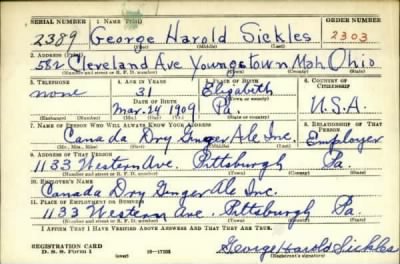 SERIAL NUMBER 1. NAME (Print) ORDER NUMBER
2389 George Harold Sickles 2303
(First) (Middle) (Last)
2. ADDRESS (Print)
582 Cleveland Ave Youngstown Mah Ohio
(Number and street or R. F. D. number) (Town) (County) (State)
3. TELEPHONE 4. AGE IN YEARS 5. PLACE OF BIRTH 6. COUNTRY OF CITIZENSHIP
none 31 Elizabith
DATE OF BIRTH (Town or county)
Mar. 24 1909 Pa. U.S.A.
(Exchange) (Number) (Mo.) (Day) (Yr.) (State or country)
7. NAME OF PERSON WHO WILL ALWAYS KNOW YOUR ADDRESS 8. RELATIONSHIP OF THAT PERSON
Canada Dry Ginger Ale Inc. Employer
(Mr., Mrs., Miss) (First) (Middle) (Last)
9. ADDRESS OF THAT PERSON
1133 Western Ave. Pittsburgh Pa.
(Number and street or R. F. D. number) (Town) (County) (State)
10. EMPLOYER'S NAME
Canada Dry Ginger Ale Inc.
11. PLACE OF EMPLOYMENT OR BUSINESS
1133 Western Ave. Pittsburgh Pa
(Number and street or R. F. D. number) (Town) (County) (State)
I AFFIRM THAT I HAVE VERIFIED ABOVE ANSWERS AND THAT THEY ARE TRUE.
REGISTRATION CARD George Harold Sickles
D. S. S. Form 1 16-17105 (Registrant's signature)